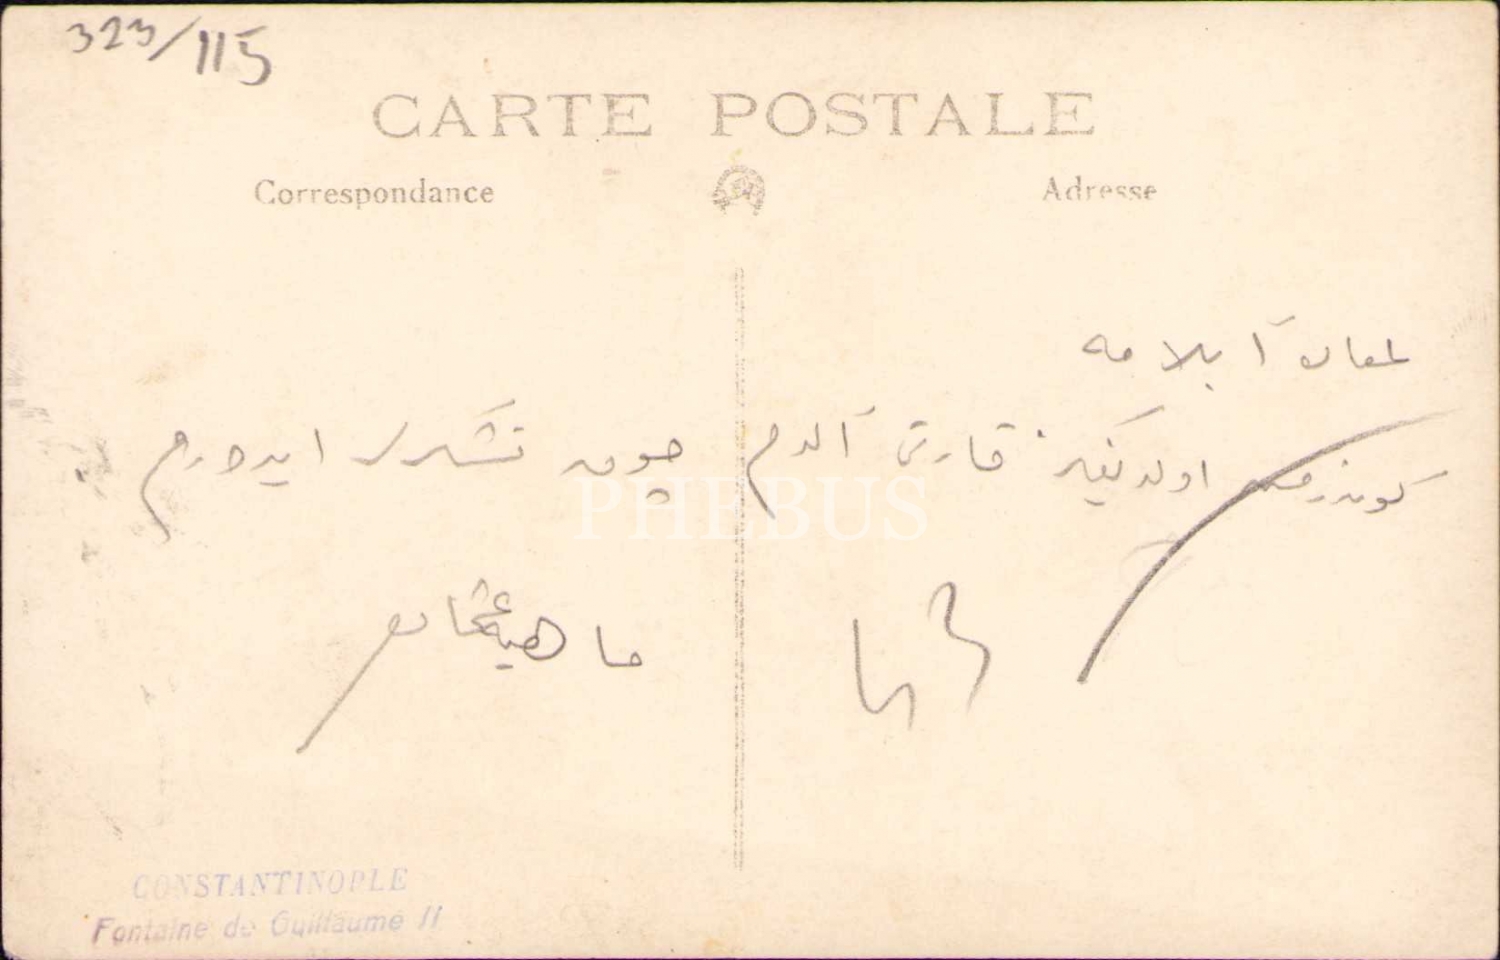 323/115
CARTE POSTALE
Correspondance
Adresse
لمعان آبلامه
كوندرمش اولديغكز قارتى آلدم چوق تشكر ايدرم
ماهيه
PHEBUS
CONSTANTINOPLE
Fontaine de Guillaume II